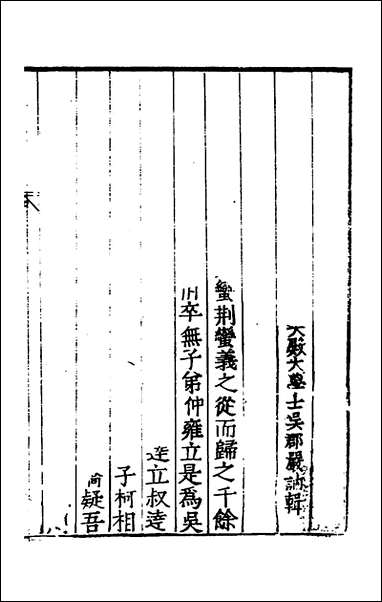 大學士吳郡嚴訥輯
蠻荆蠻義之從而歸之千餘
卒無子弟仲雍立是為吳
立叔逹
子柯相
疑吾